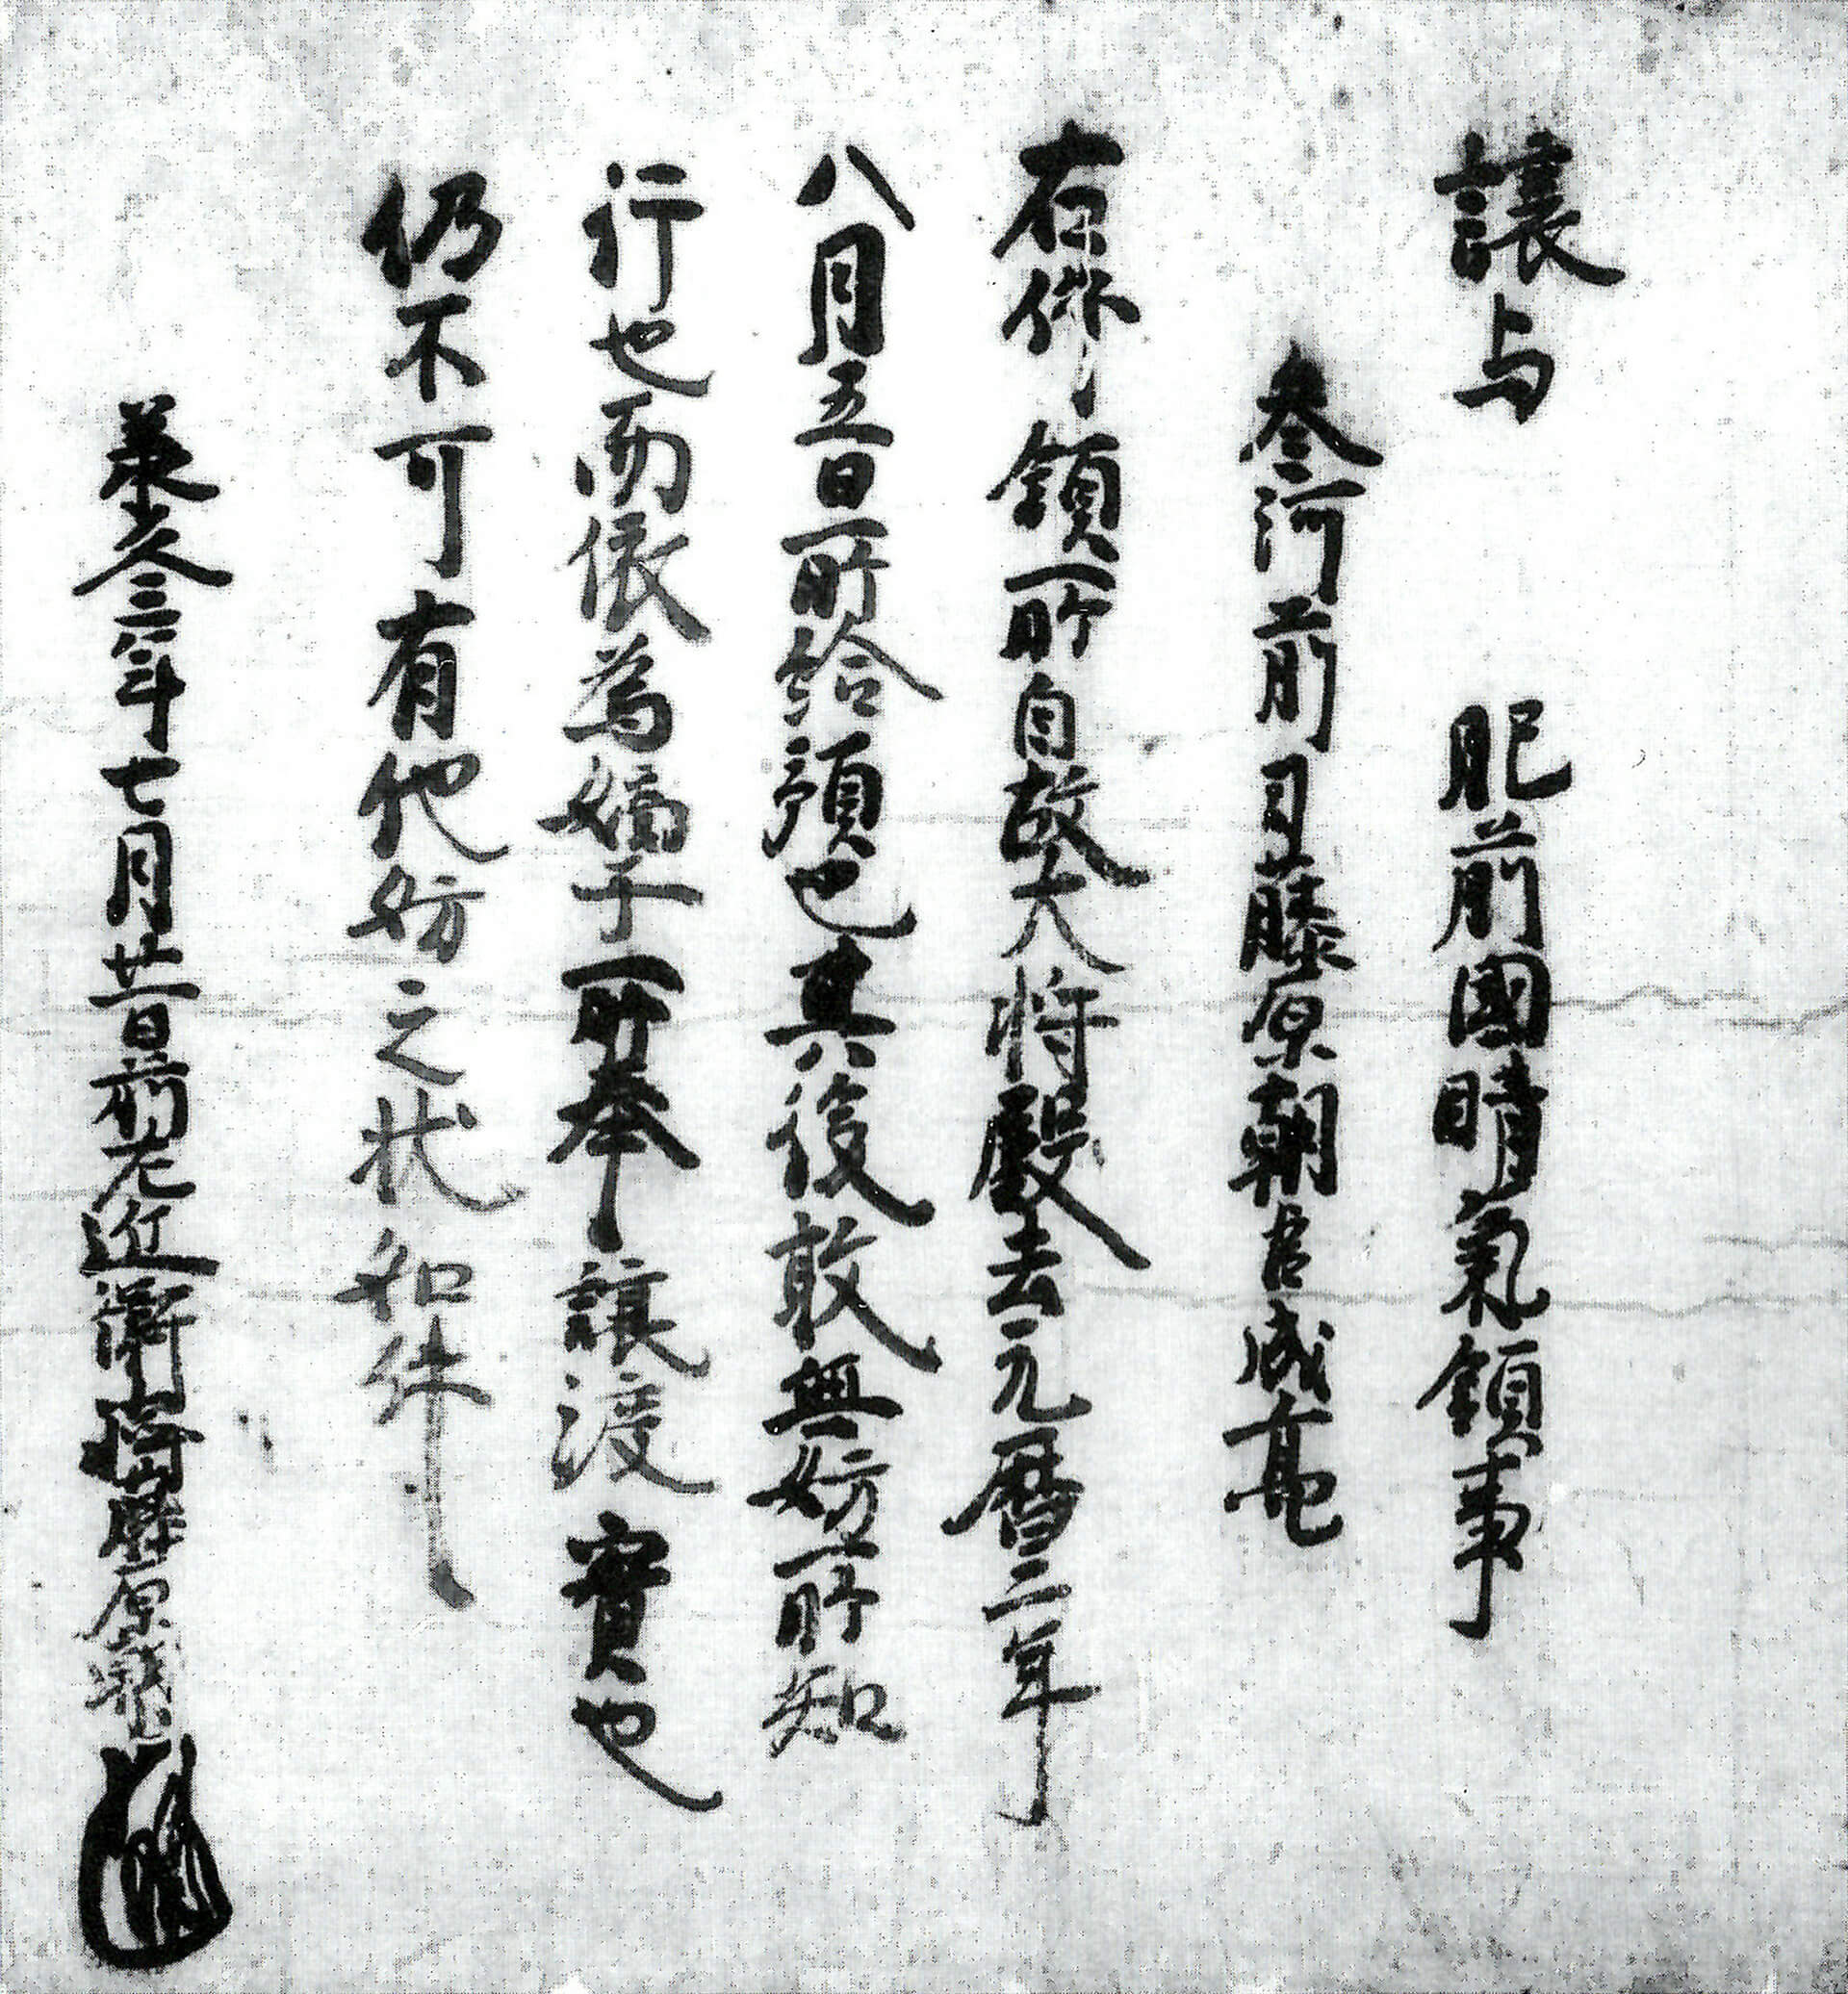 譲与 肥前國晴氣領事
参河前司藤原朝臣成亮
右件領所自故大将殿去元暦二年
八月五日所給預也其後敢無妨所知
行也而依為嫡子所奉譲渡實也
仍不可有他妨之状如件
承久三年七月廿一日前左近衛将監藤原